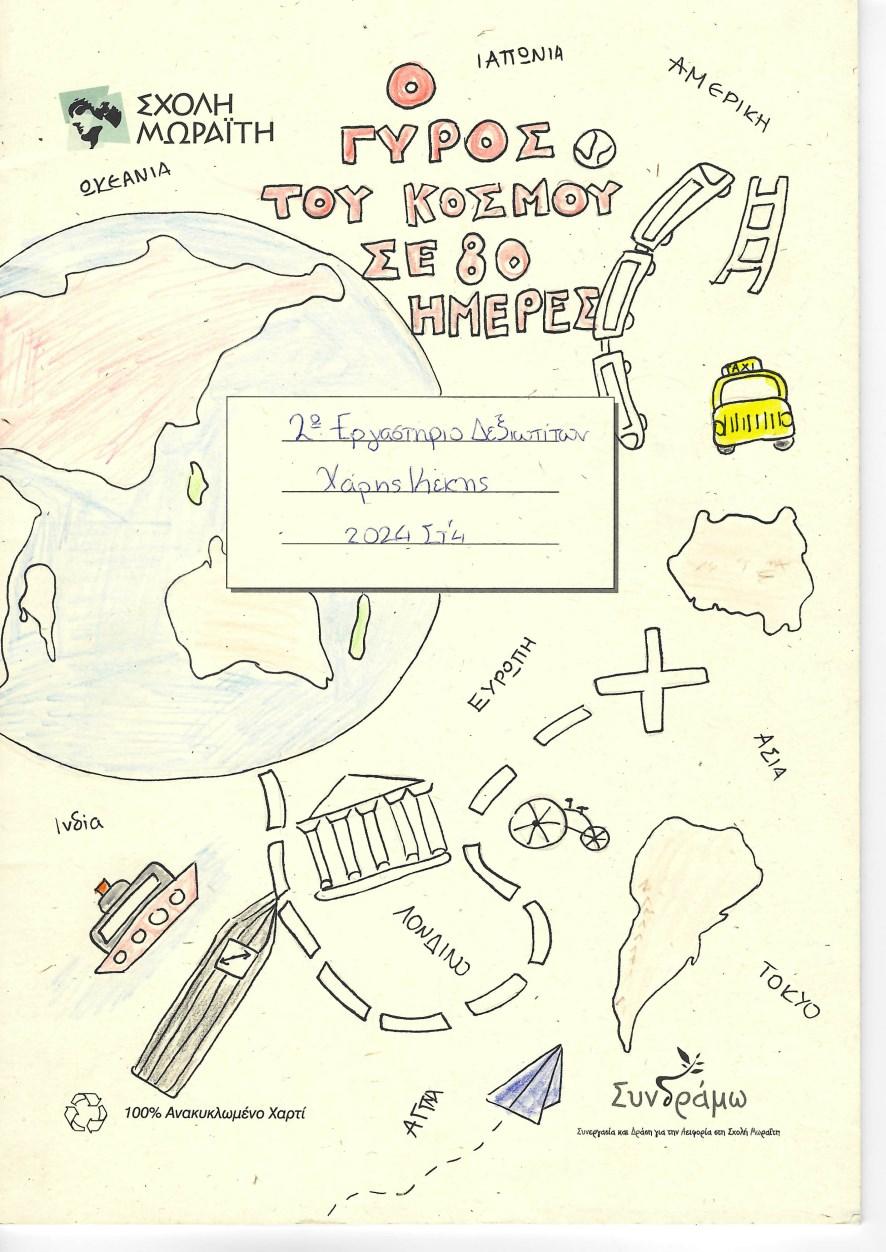 ΣΧΟΛΗ
ΜΩΡΑΪΤΗ
Ο
ΓΥΡΟΣ
ΤΟΥ ΚΟΣΜΟΥ
ΣΕ 80
ΗΜΕΡΕΣ
ΙΑΠΩΝΙΑ
ΑΜΕΡΙΚΗ
ΩΚΕΑΝΙΑ
TAXI
2º Εργαστήριο Δεξιοτήτων
Χάρης
2024 Στ'4
ΕΥΡΩΠΗ
ΑΣΙΑ
Ινδία
ΛΟΝΔΙΝΟ
ΤΟΚΥΟ
100% Ανακυκλωμένο Χαρτί
Συνδράμω
Συνεργασία και Δράση για την Αειφορία στη Σχολή Μωραΐτη